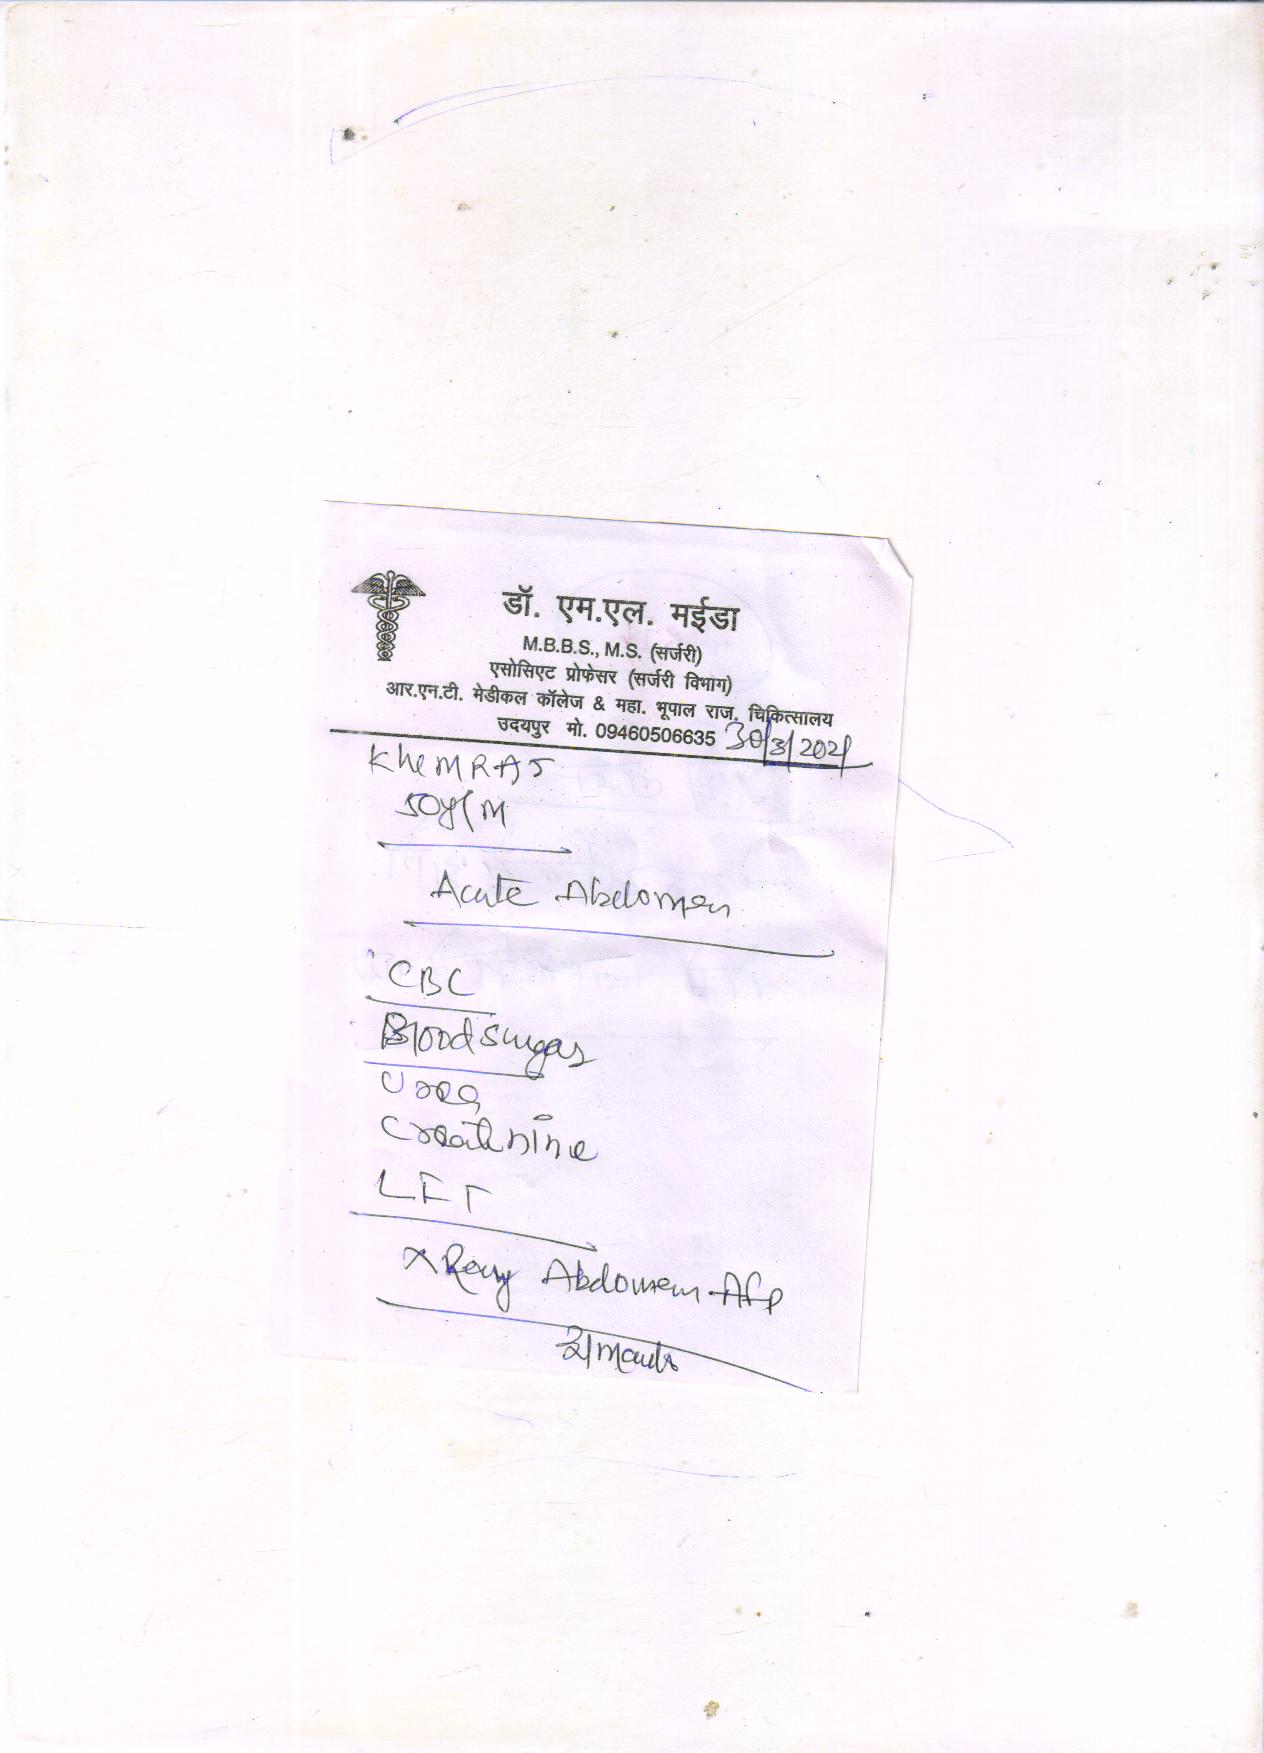 डॉ. एम.एल. मईडा
M.B.B.S., M.S. (सर्जरी)
एसोसिएट प्रोफेसर (सर्जरी विभाग)
आर.एन.टी. मेडीकल कॉलेज & महा. भूपाल राज. चिकित्सालय
उदयपुर मो. 09460506635 30/3/2021
KheMRAJ
50y/M
Acute Abdomen
CBC
Blood Sugar
Urea
Creatinine
LFT
X Ray Abdomen